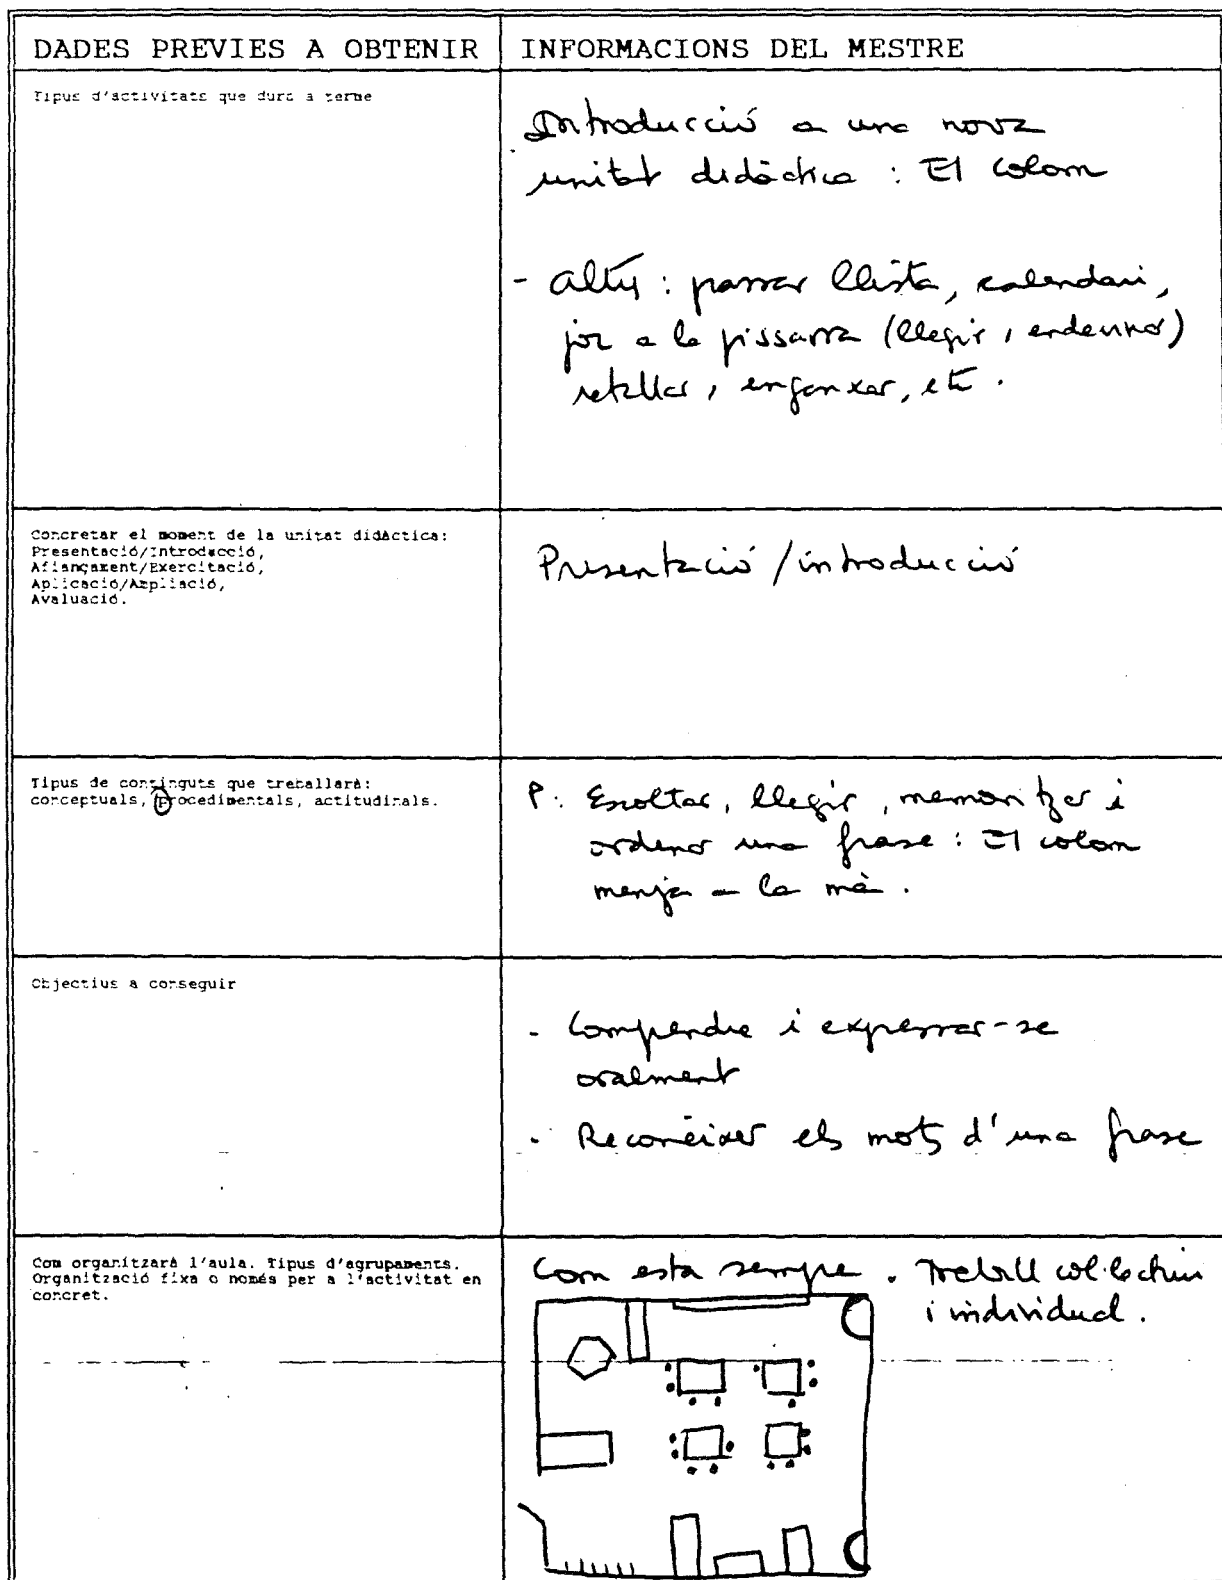 DADES PREVIES A OBTENIR
INFORMACIONS DEL MESTRE
Tipus d'activitats que durà a terme
Introducció a una nova
unitat didàctica : El colom
- altres : passar llista, calendari,
joc a la pissarra (llegir, endevinar)
retallar, enganxar, etc.
Concretar el moment de la unitat didàctica:
Presentació/Introducció,
Afiançament/Exercitació,
Aplicació/Ampliació,
Avaluació.
Presentació/introducció
Tipus de continguts que treballarà:
conceptuals, procedimentals, actitudinals.
P: Escoltar, llegir, memoritzar i
ordenar una frase : El colom
menja a la mà.
Objectius a conseguir
- Comprendre i expressar-se
oralment
- Reconèixer els mots d'una frase
Com organitzarà l'aula. Tipus d'agrupaments.
Organització fixa o només per a l'activitat en
concret.
Com esta sempre. Treball col·lectiu
i individual.